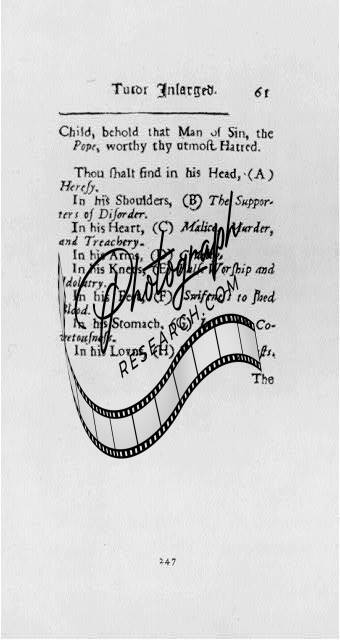 Tutor Inlarged. 61
Child, behold that Man of Sin, the
Pope, worthy thy utmoſt Hatred.
Thou ſhalt find in his Head, (A)
Hereſy.
In his Shoulders, (B) The Suppor-
ters of Diſorder.
In his Heart, (C) Malice, Murder,
and Treachery.
In his Arms,
In his Knees, (E) Falſe Worſhip and
Idolatry.
In his Feet, (F) Swiftneſs to ſhed
Blood.
In his Stomach, Co-
vetouſneſs.
In his Loyns, (H)
The
247
Photograph
RESEARCH.COM